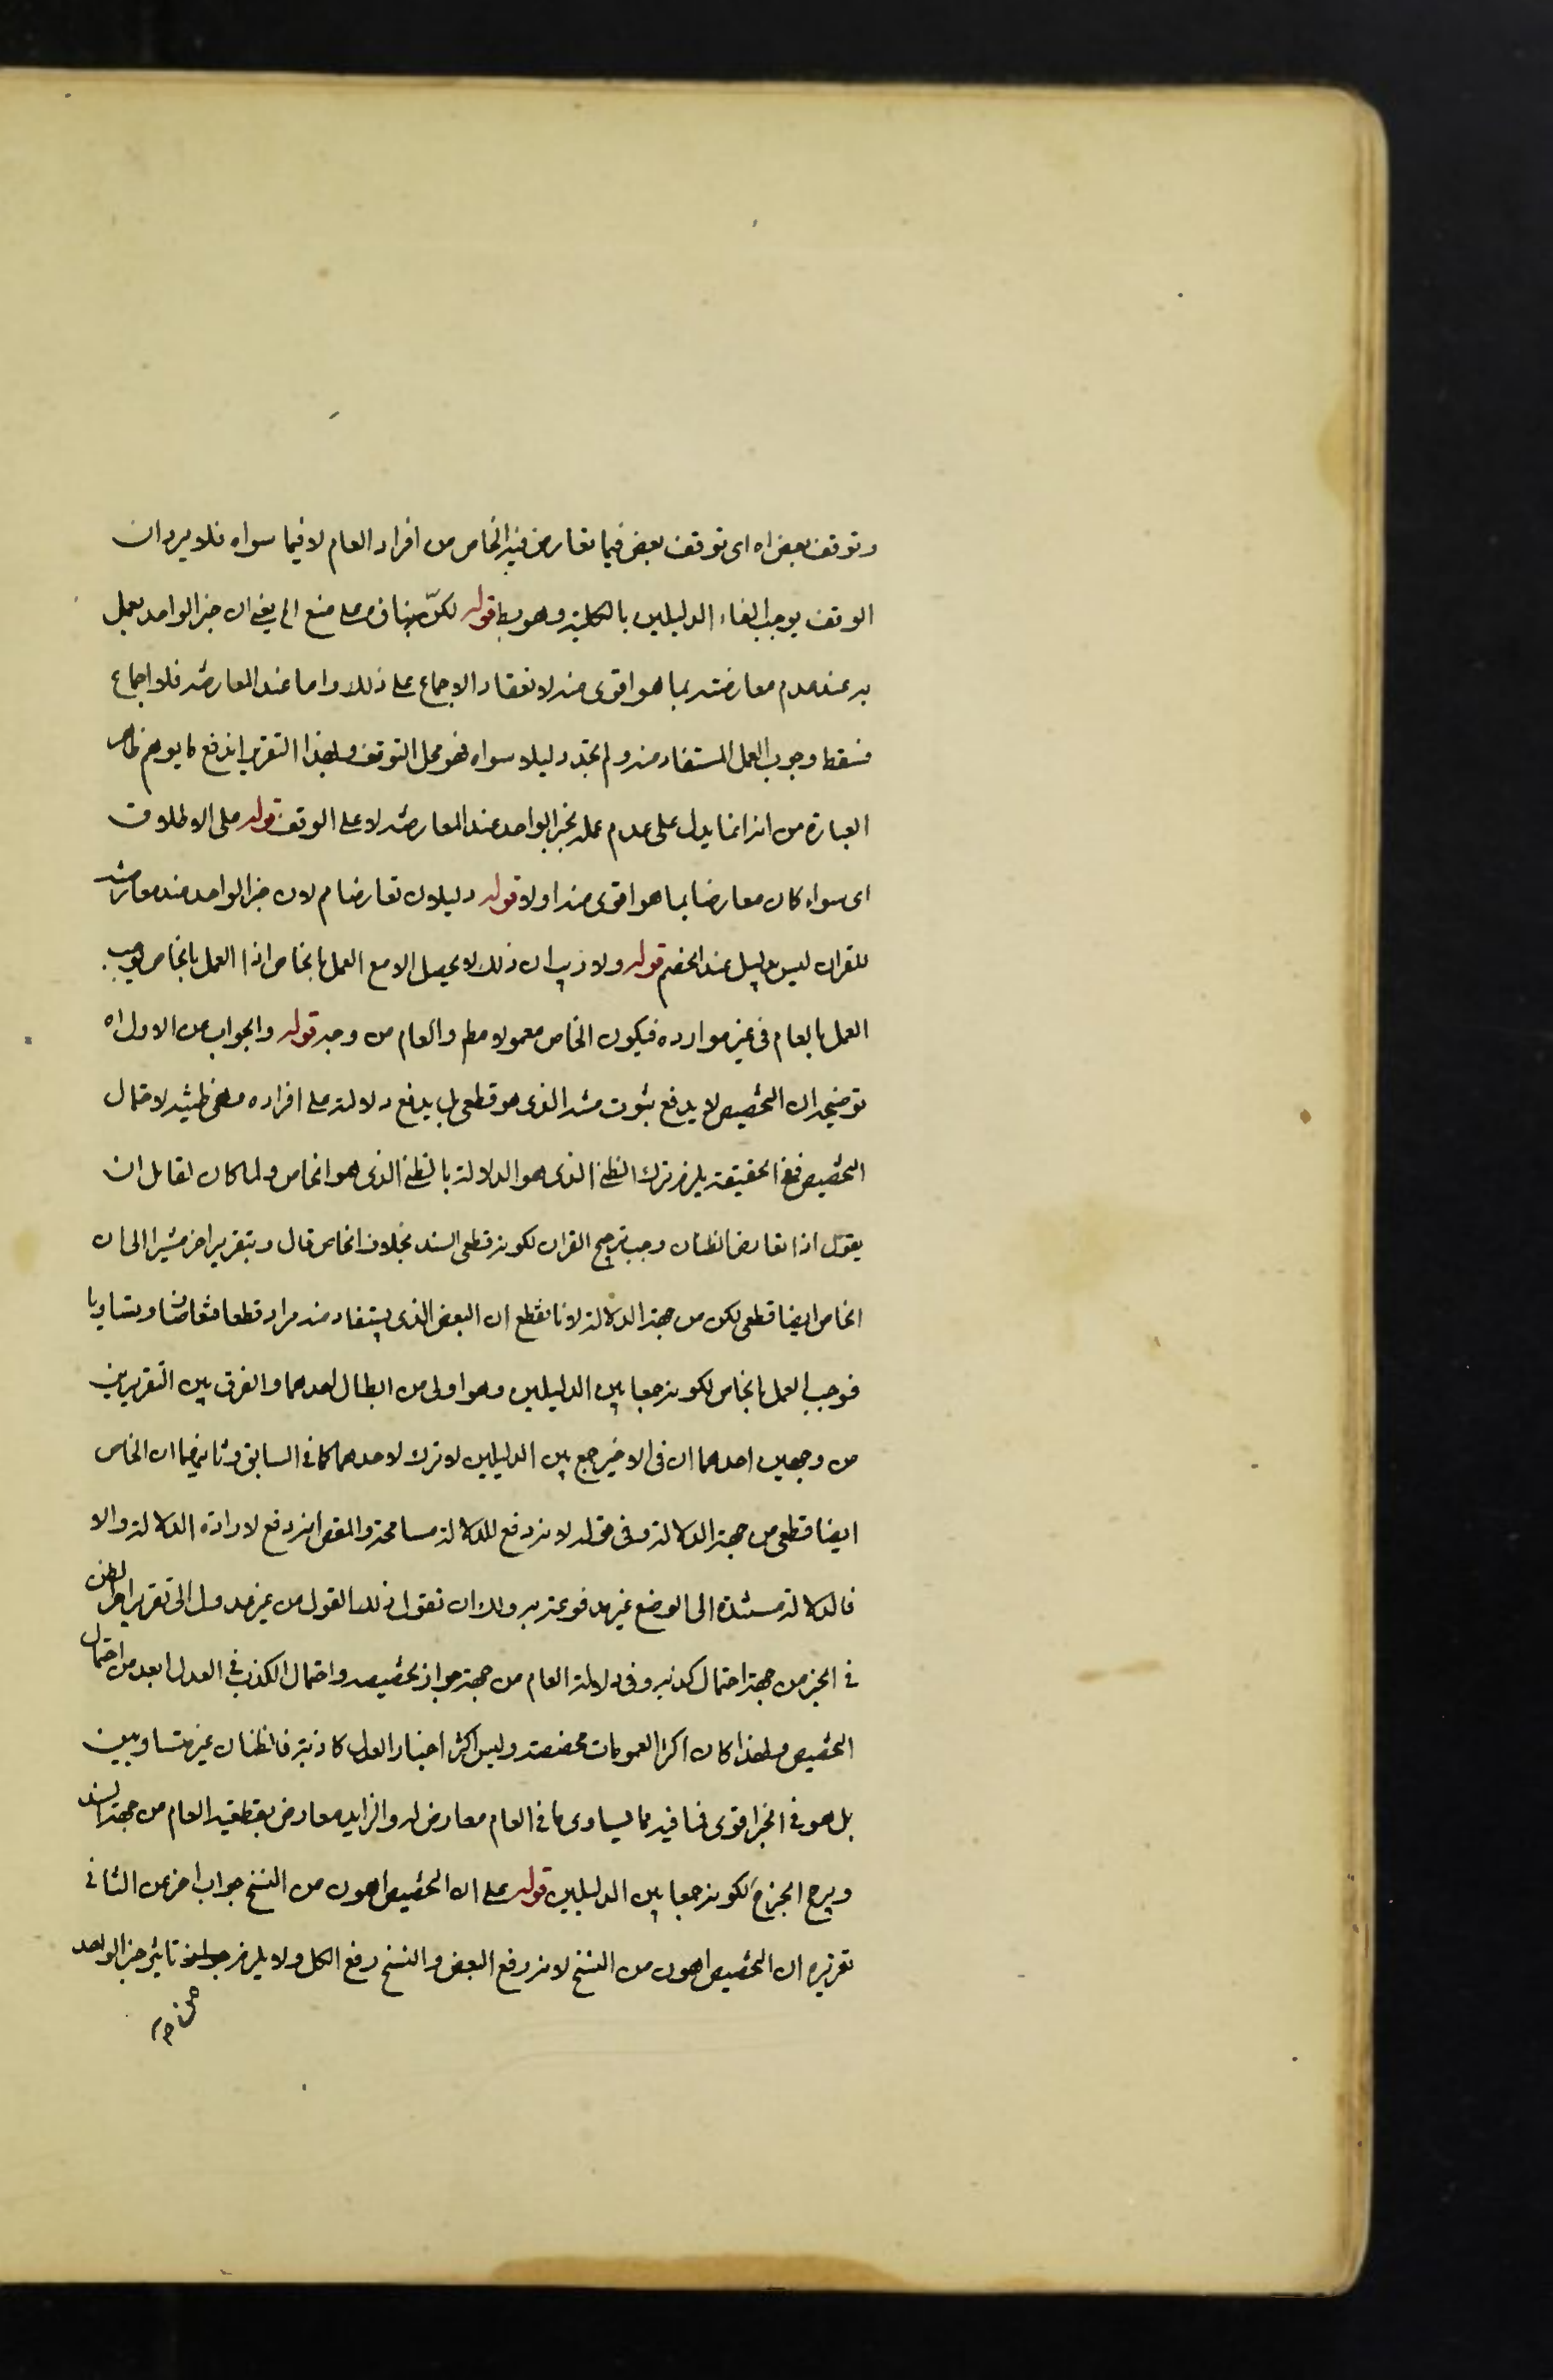 وتوقف بعض اه اى توقف بعض فيما تعارض فيه الخاص من افراد العام لا فيما سواه فلا يرد ان
الوقف يوجب الغاء الدليلين بالكلية وهو بط قوله لكنه بناف على منع الى يعنى ان خبر الواحد يعمل
به عند عدم معارضته بما هو اقوى منه لانعقاد الاجماع على ذلك واما عند المعارضه فلا اجماع
فسقط وجوب العمل المستفاد منه ولم نجد دليلا سواه فهو محل التوقف وبهذا التقرير اندفع ما يوهم ظاهر
العبارة من انه انما يدل على عدم عمله بخبر الواحد عند المعارضه لا على الوقف قوله على الاطلاق
اى سواء كان معارضا بما هو اقوى منه او لا قوله دليلان تعارضا م لان خبر الواحد عند معارضته
للقران ليس بدليل عند الخصم قوله ولا ريب ان ذلك لا يحصل الا مع العمل بالخاص اذا العمل بالخاص يوجب
العمل بالعام فى غير موارده فيكون الخاص معمولا مط والعام من وجه قوله والجواب عن الاول اه
توضيحه ان التخصيص لا يدفع ثبوت متنه الذى هو قطعى بل يدفع دلالته على افراده وهى ظنيه لاحتمال
التخصيص ففى الحقيقة يلزم ترك الظنى الذى هو الدلالة بالظنى الذى هو الخاص ولما كان لقائل ان
يقول اذا تعارض الظنان وجب ترجيح القران لكونه قطعى السند بخلاف الخاص قال وبتقرير اخر مشيرا الى ان
الخاص ايضا قطعى لكن من جهة الدلالة لانا نقطع ان البعض الذى يستفاد منه مراد قطعا فتعارضا وتساويا
فوجب العمل بالخاص لكونه جمعا بين الدليلين وهو اولى من ابطال احدهما والفرق بين التقريرين
من وجهين احدهما ان فى الاخير جمع بين الدليلين لا ترك لاحدهما كما فى السابق وثانيهما ان الخاص
ايضا قطعى من جهة الدلالة وفى قوله لانه رفع للدلالة مسامحة والمقص انه رفع لارادة الدلالة والا
فالدلالة مستندة الى الوضع غير مدفوعة به ولك ان تقول ذلك القول من غير عدول الى تقرير اخر الظن
فى الخبر من جهة احتمال كذبه وفى دلالة العام من جهة جواز تخصيصه واحتمال الكذب فى العدل ابعد من احتمال
التخصيص ولهذا كان اكثر العمومات مخصصة وليس اكثر اخبار العدل كاذبة فالظنان غير متساويين
بل هو فى الخبر اقوى فما فيه مما يساوى ما فى العام معارض له والزايد معارض بقطعية العام من جهة السند
ويرجح الخبر ح لكونه جمعا بين الدليلين قوله على ان التخصيص اهون من النسخ جواب اخر عن الثانى
تقريره ان التخصيص اهون من النسخ لانه رفع البعض والنسخ رفع الكل ولا يلزم من جواز تاثير خبر الواحد